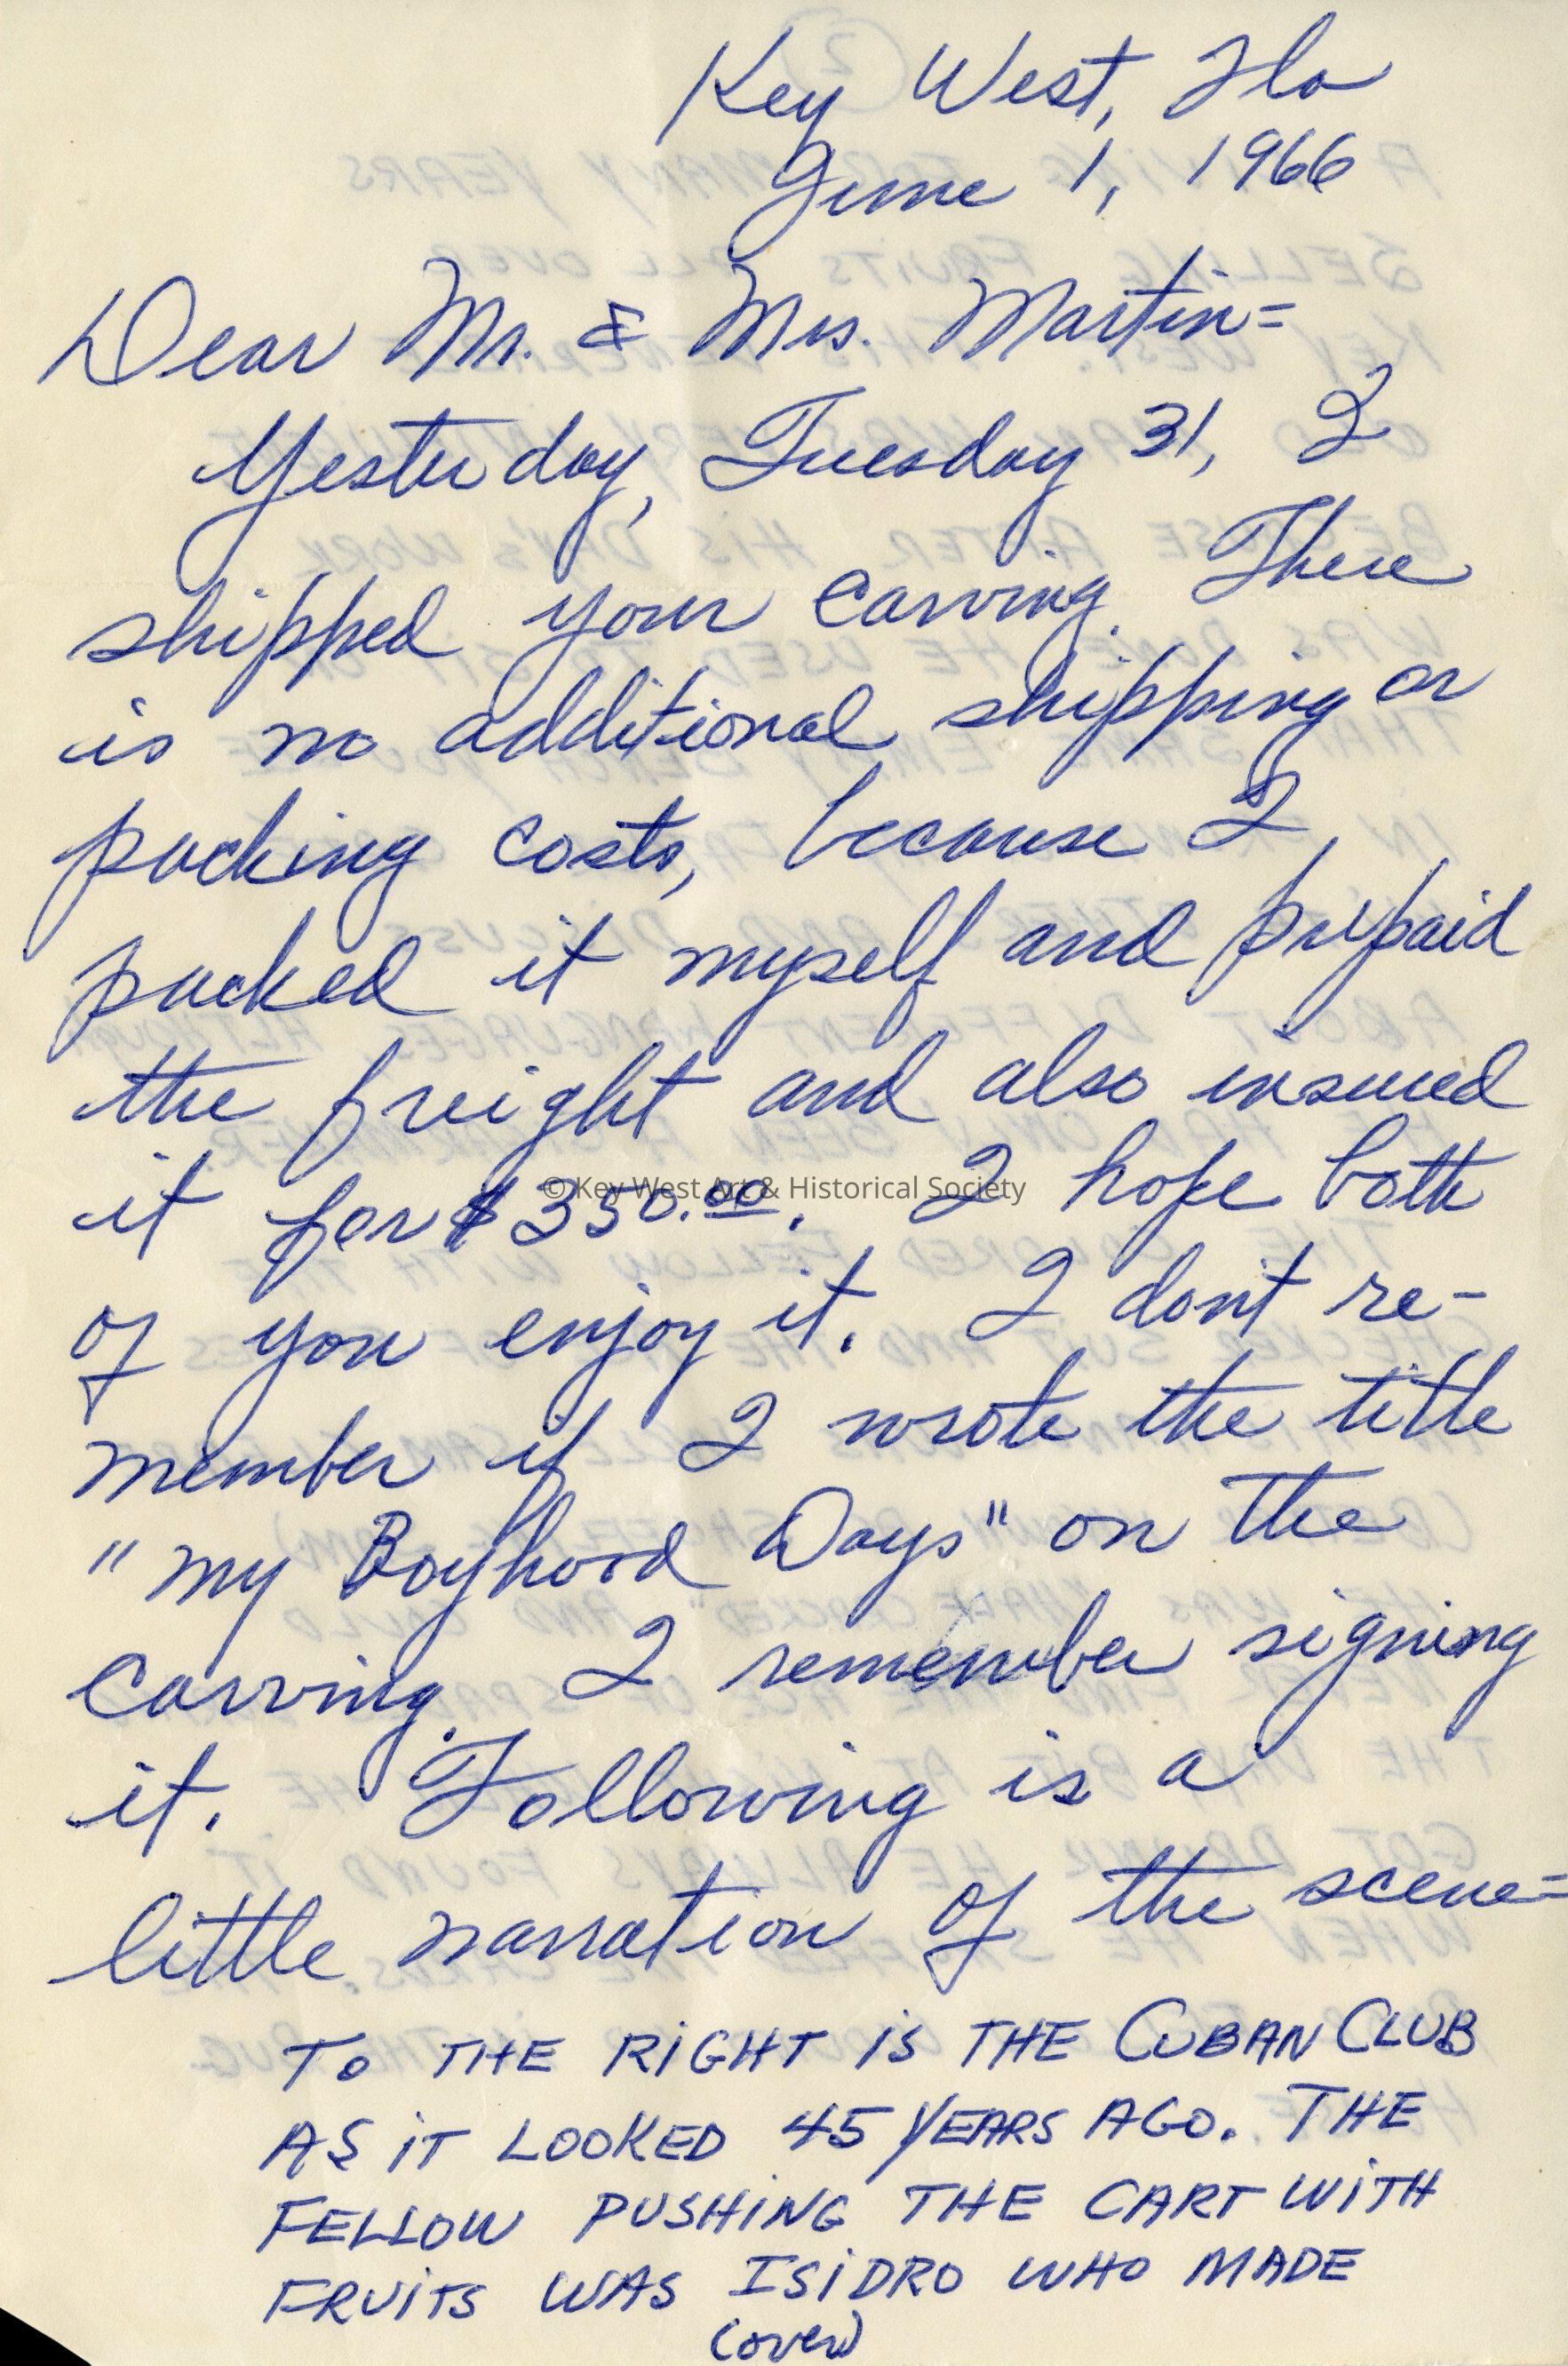 Key West, Fla
June 1, 1966
Dear Mr. & Mrs. Martin=
Yesterday, Tuesday 31, I
shipped your carving. There
is no additional shipping or
packing costs, because I
packed it myself and prepaid
the freight and also insured
it for $350.00. I hope both
© Key West Art & Historical Society
of you enjoy it. I don't re-
member if I wrote the title
"My Boyhood Days" on the
carving. I remember signing
it. Following is a
little narration of the scene=
TO THE RIGHT IS THE CUBAN CLUB
AS IT LOOKED 45 YEARS AGO. THE
FELLOW PUSHING THE CART WITH
FRUITS WAS ISIDRO WHO MADE
(over)